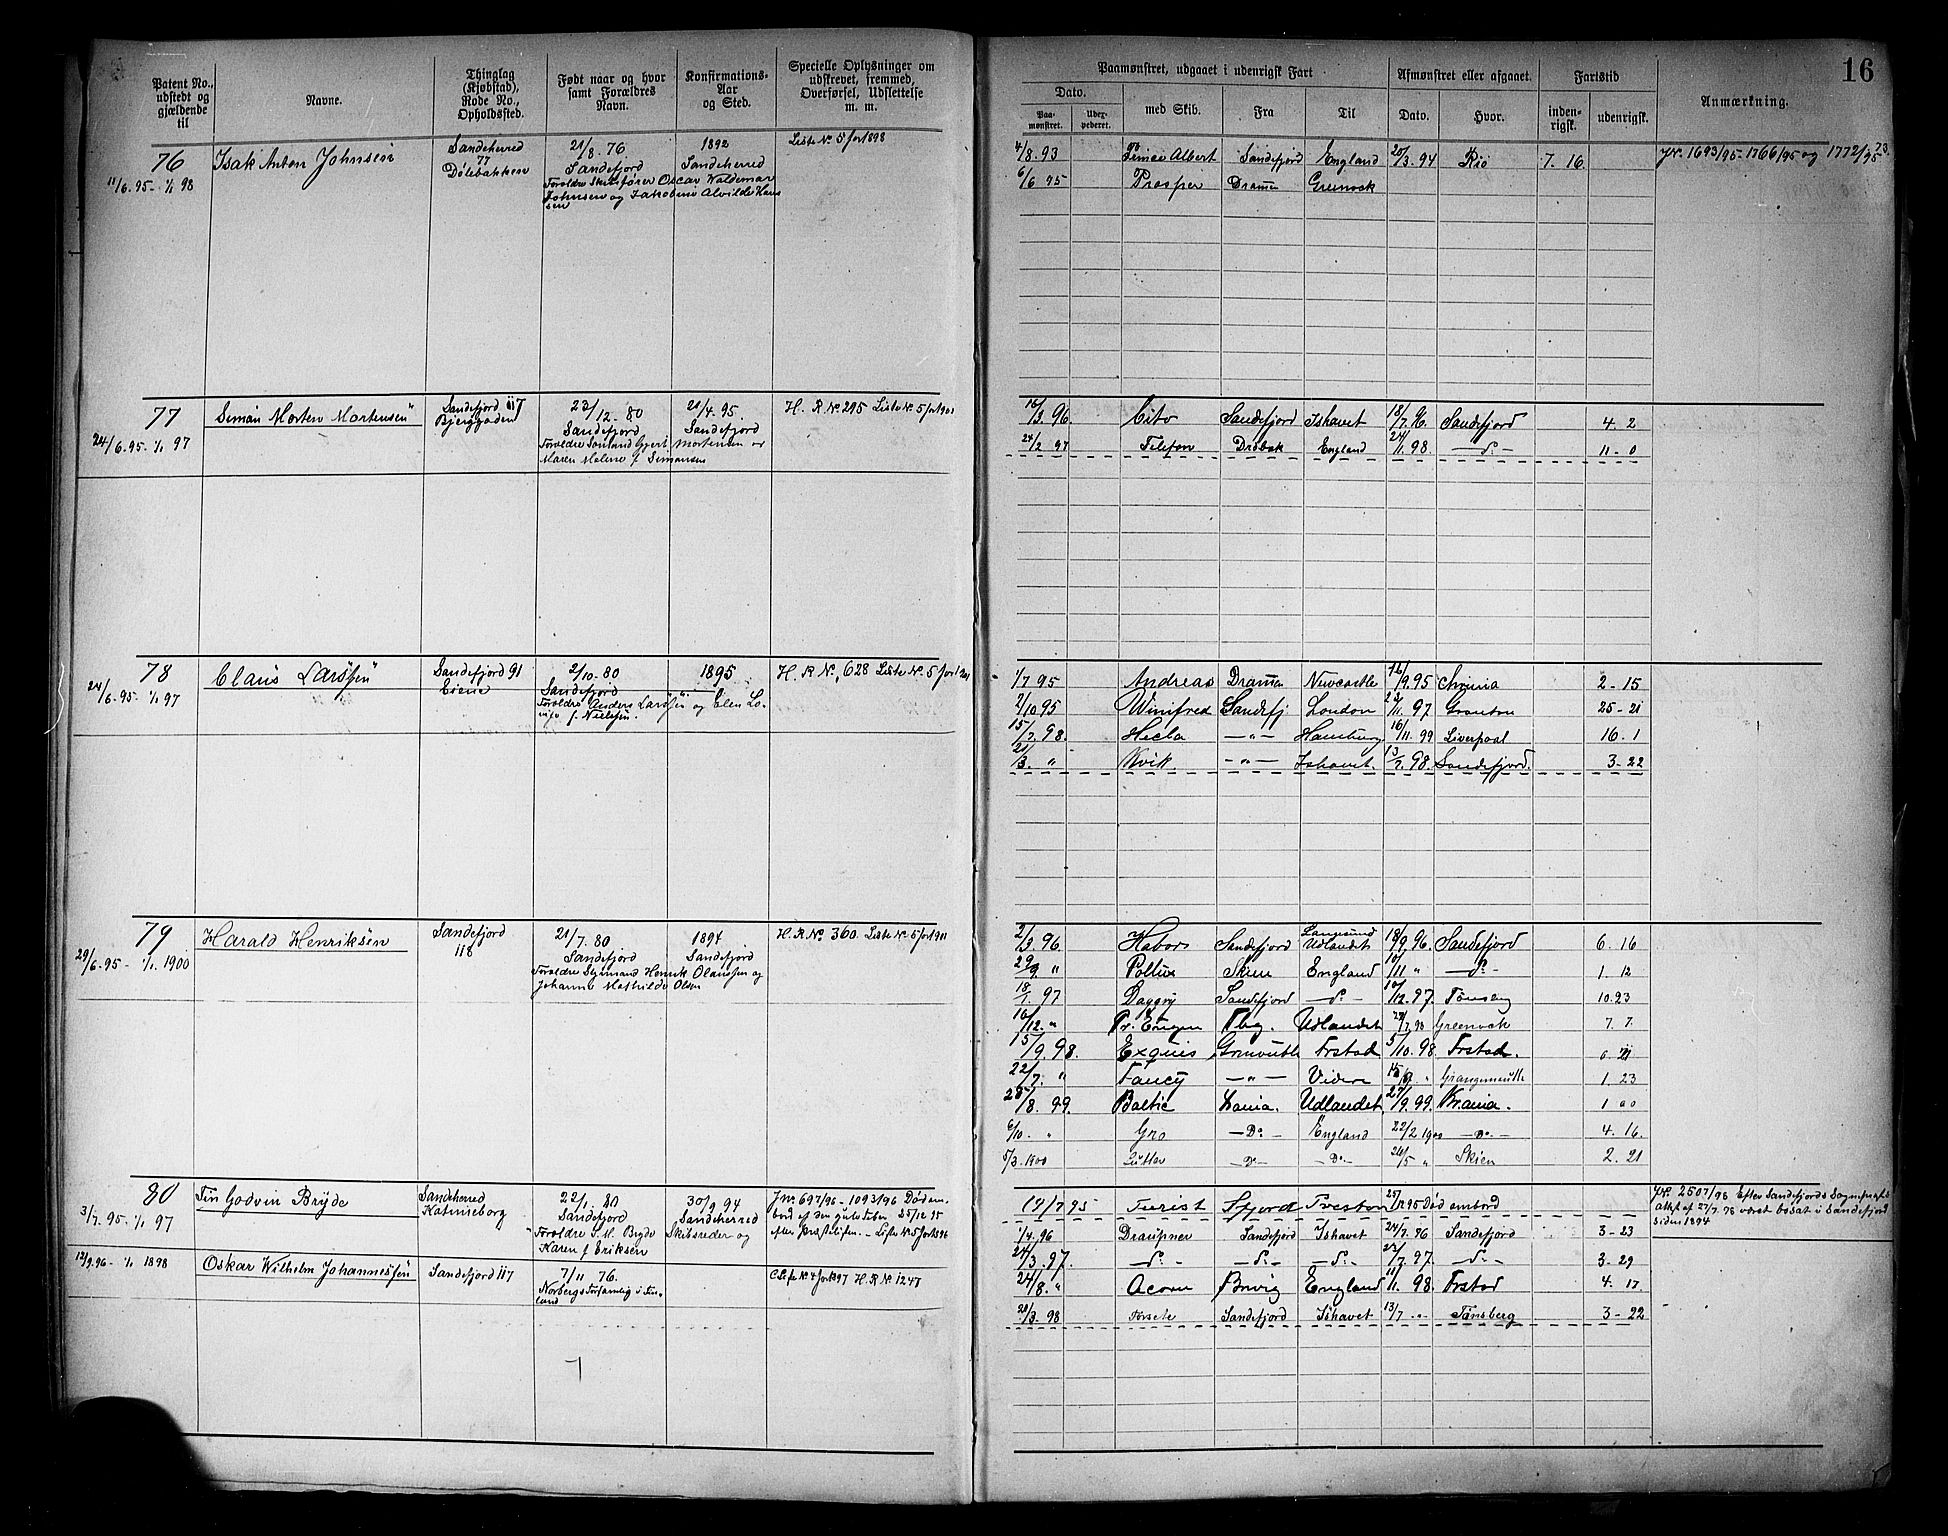 16
Patent No., udstedt og gjældende til
Navne.
Thinglag (Kjøbstad), Rode No., Opholdssted.
Født naar og hvor samt Forældres Navn.
Konfirmations-Aar og Sted.
Specielle Oplysninger om udskrevet, fremmed, Overførsel, Udslettelse m. m.
Paamønstret, udgaaet i udenrigsk Fart
Afmønstret eller afgaaet.
Fartstid
Anmærkning.
Dato.
Paa-mønstret.
Udex-pederet.
med Skib.
Fra
Til
Dato.
Hvor.
inden-rigsk.
udenrigsk.
76 Isak Anton Johnsen Sandeherred 77 21/8. 76 1892 Liste No 5 for 1898
11/6. 95 - 1/1 98 Dølebakken Sandefjord Sandeherred
Forældre Skibsfører Oscar Waldemar
Johnsen og Jakobine Alvilde Hansen
4/8. 93 Prince Albert Sandefjord England 20/3. 94 Rio 7. 16. J.Nr. 1693/95 - 1766/95 og 1772/95
6/6 95 Prosper Drammen Greenock
77 Simon Morten Mortensen Sandefjord 117 23/12 - 80 21/4. 95. H. R No 295 Liste No 5 for 1901
24/6. 95. 1/1 97 Bjerggaden Sandefjord Sandefjord
Mortensen og
Maren Malene f. Simonsen
16/3. 96 Cito Sandefjord Ishavet 18/7. 96. Sandefjord 4. 2
24/2 97 Telefon Drøbak England 24/11. 98. - do - 11 - 0
78 Claus Larssen Sandefjord 91 2/10. 80 1895 H. R No, 628 Liste No 5 for 1901
24/6. 95. 1/1 97 Sandefjord
Forældre Anders Larssen og Elen Lovise f. Nielsen.
1/7 95 Andreas Drammen Newcastle 16/9. 95 2 - 15
2/10 95 Winifred Sandefj London 23/11. 97 Granton 25 - 21
15/2. 98. Hecla - " - Hamburg 16/11. 99 Liverpool 16. 1
21/3. " Kvik - " - Ishavet. 13/7. 98. Sandefjord. 3 - 22
79 Harald Henriksen Sandefjord 118 21/7. 80 1894 H. R No 360. Liste No 5 for 1911
29/6. 95 - 1/1. 1900 Sandefjord Sandefjord
Forældre Styrmand Henrik Olaussen og
Johanne Mathilde Olsen
2/3. 96 Habor Sandefjord Langesund Udlandet 18/9. 96. Sandefjord 6. 16
29/9. " Pollux Skien England 10/11 " - do - 1. 12
18/1. 97 Daggry Sandefjord - do - 10/12. 97. Tønsberg 10. 23
16/12. " Pr. Eugen Tbg. Udlandet 24/7. 98 Greenock 7. 7.
15/9. 98. Exquis Frstad 5/10. 98. Frstad. 0. 21
22/7. " Fancy - " - Videre Grangemouth 1. 23
28/8. 99. Baltic Udlandet. 27/9. 99. Krania. 1 00
6/10. " Gro - Do - England 22/2 1900 - Do - 4. 16.
5/3. 1900 - Do - - Do - 26/5 " Skien 2. 21
80 Fin Godvin Bryde Sandeherred 22/1. 80 30/9 94 J.No. 697/96 - 1093/96 Død om-
3/7. 95. 1/1 97 Sandefjord Sandeherred bord af den gule Feber. 25/12. 95
Forældre S. M. Bryde Skibsreder og
Karen f Eriksen
17/7 95 Turist Sfjord Preston 25/12 95 Død ombord
J.Nr. 2507/98 Efter Sandefjords Sogneprests Attest af 27/7. 98 været bosat i Sandefjord siden 1894
12/9. 96 - 1/1 1898 Oskar Wilhelm Johannessen Sandefjord 117 7/11 76. Liste No 4 for 1897 H. R No 1247
1/4. 96 Draupner Sandefjord Ishavet 24/7. 96 Sandefjord 3 - 23
24/3. 97. - do - - do - - do - 23/7. 97. - do - 3 - 29
24/8. " Acorn Brevig England 11/11. 98. Frstad 4. 17
20/3. 98 Forsete Sandefjord Ishavet 13/7 " Tønsberg 3 - 22